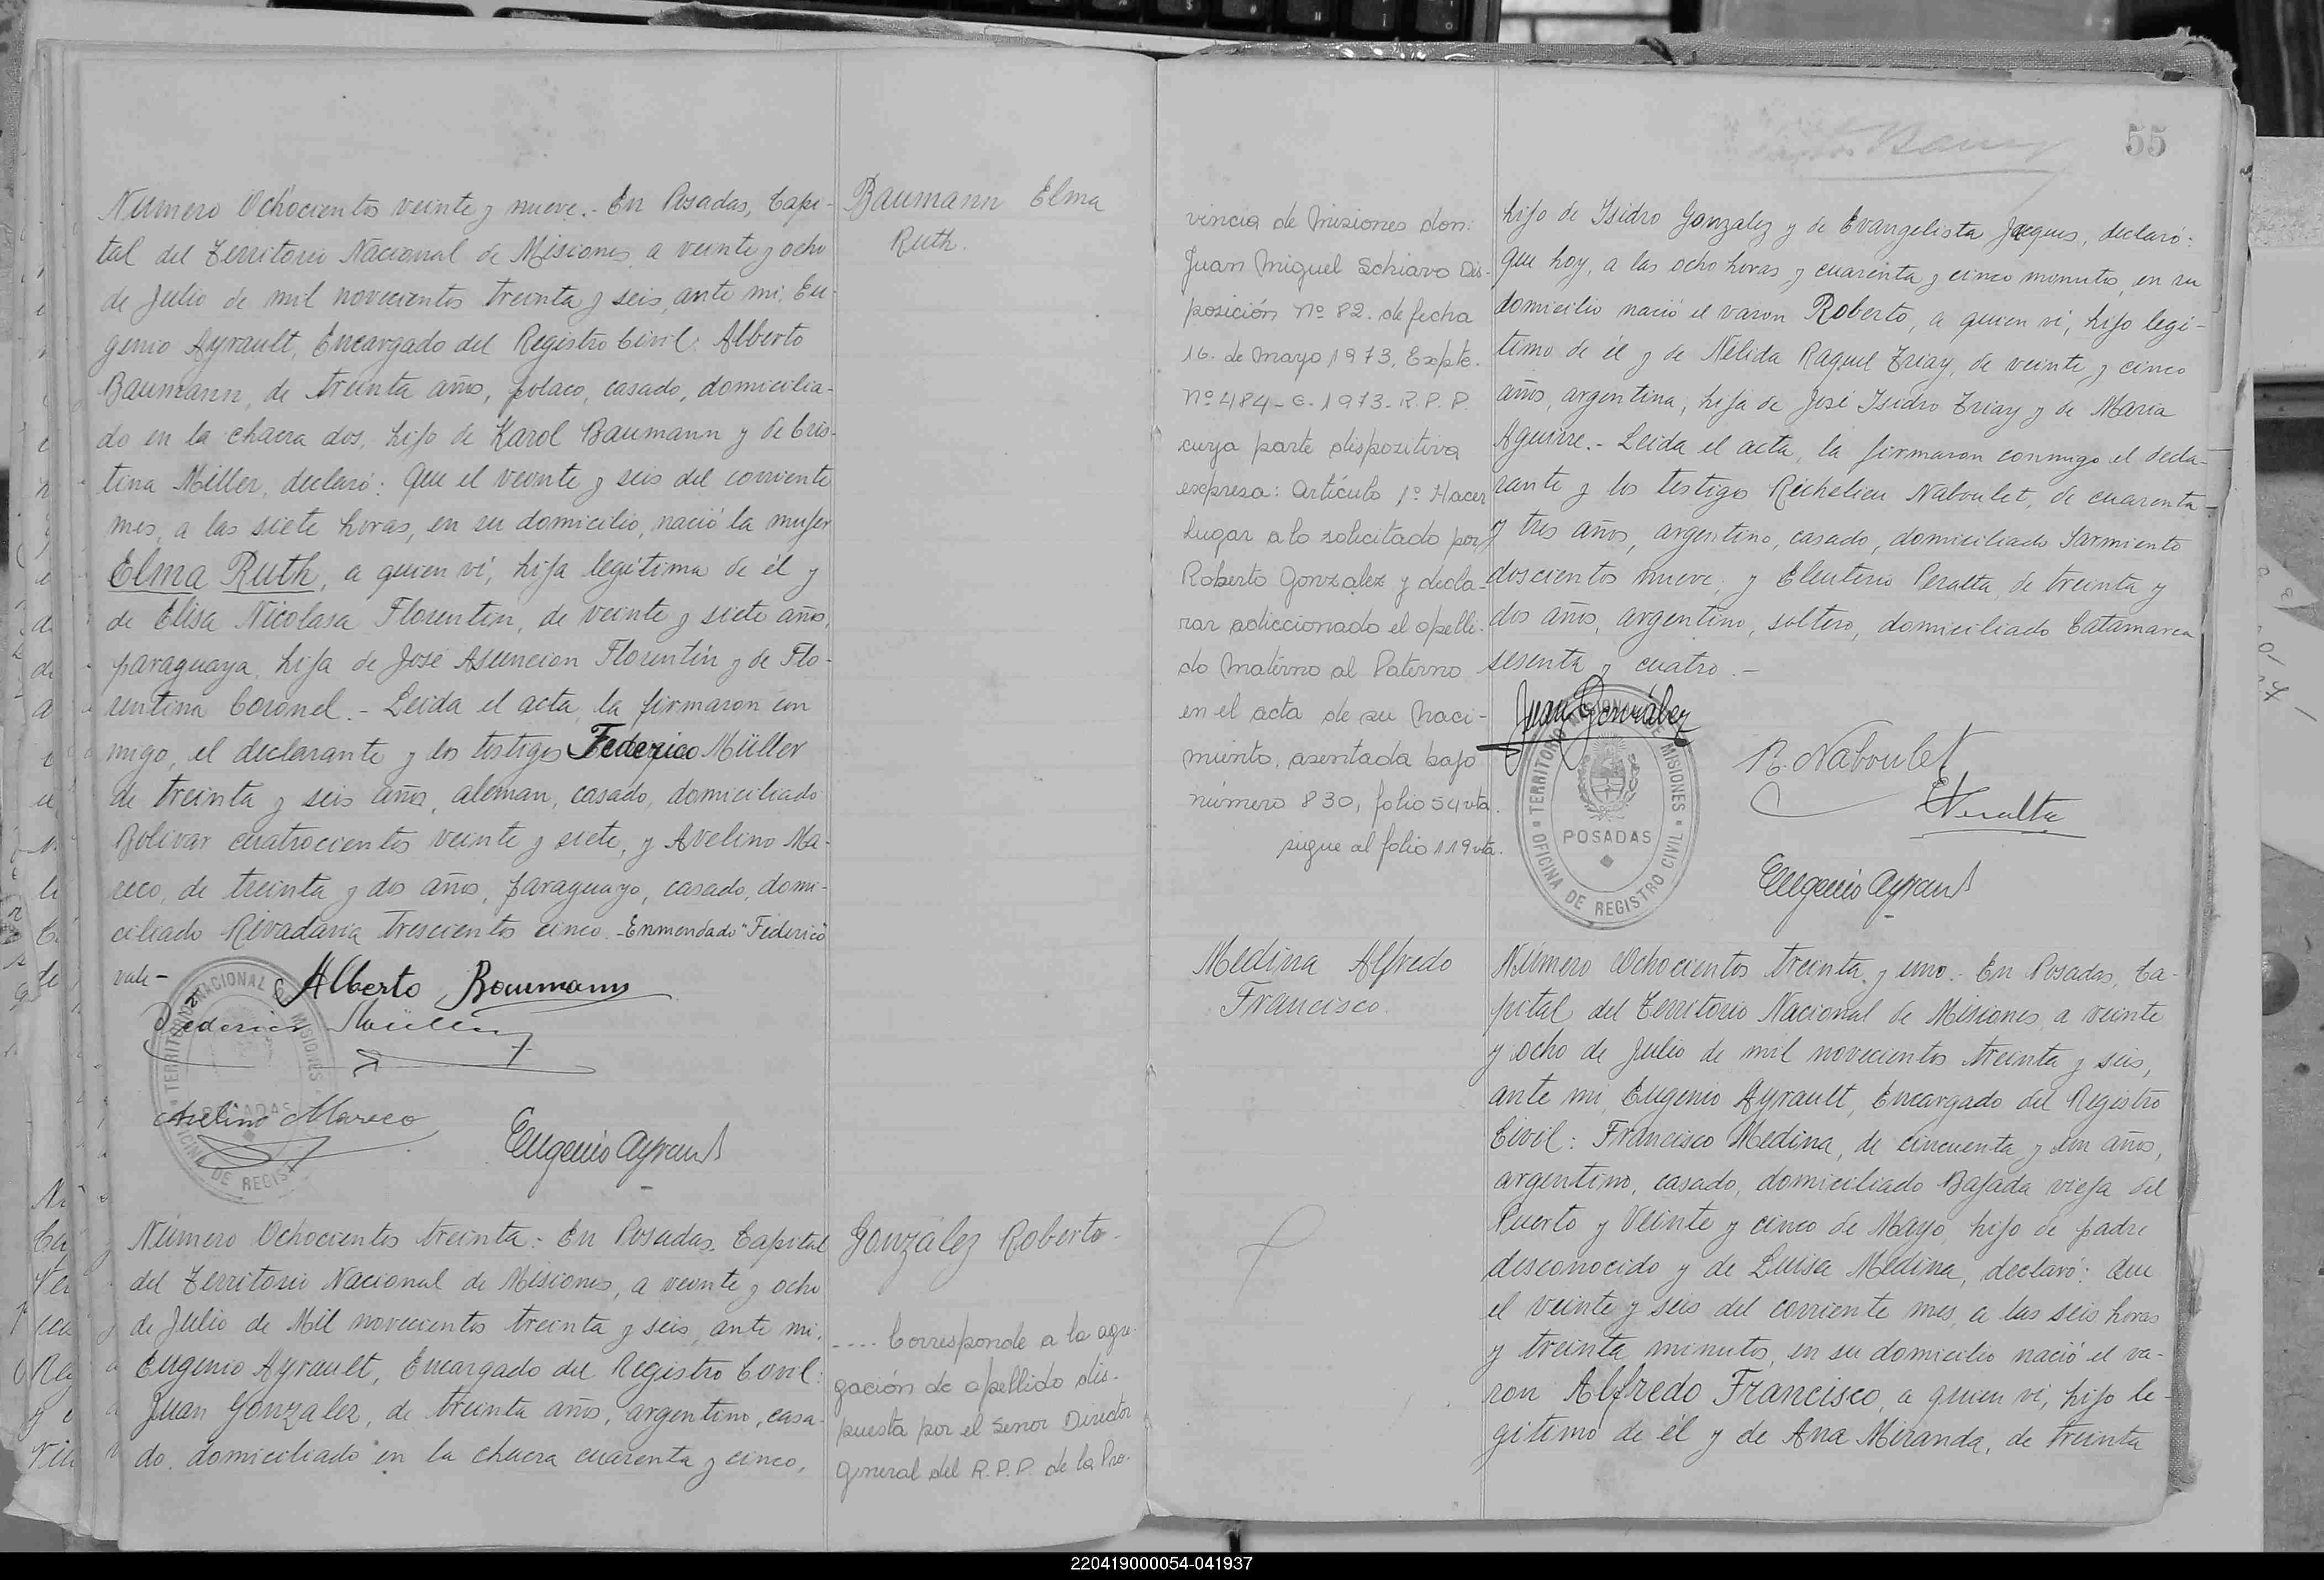 Número Ochocientos veinte y nueve.- En Posadas, Capi-
tal del Territorio Nacional de Misiones a veinte y ocho
de Julio de mil novecientos treinta y seis, ante mi, Eu-
genio Ayrault, Encargado del Registro Civil: Alberto
Baumann, de treinta años, polaco, casado, domicilia-
do en la chacra dos, hijo de Karol Baumann y de Cris-
tina Miller, declaró: Que el veinte y seis del corriente
mes, a las siete horas, en su domicilio, nació la mujer
Elma Ruth, a quien vi, hija legítima de él y
de Elisa Nicolasa Florentin, de veinte y siete años,
paraguaya, hija de José Asuncion Florentín y de Flo-
rentina Coronel.- Leida el acta, la firmaron con
migo, el declarante y los testigos Federico Müller
de treinta y seis años, aleman, casado, domiciliado
Bolivar cuatrocientos veinte y siete, y Avelino Ma-
reco, de treinta y dos años, paraguayo, casado, domi-
ciliado Rivadavia trescientos cinco.-Enmendado "Federico"
vale-
Alberto Baumann
Federico Müller
Avelino Mareco
Eugenio Ayrault
TERRITORIO NACIONAL DE MISIONES
POSADAS
OFICINA DE REGIST
Baumann Elma
Ruth.
Número Ochocientos treinta: En Posadas, Capital
del Territorio Nacional de Misiones, a veinte y ocho
de Julio de Mil novecientos treinta y seis, ante mi,
Eugenio Ayrault, Encargado del Registro Civil:
Juan Gonzalez, de treinta años, argentino, casa-
do, domiciliado en la chacra cuarenta y cinco,
González Roberto-
.... Corresponde a la agre-
gación de apellido dis-
puesta por el Senor Director
General del R.P.P. de la Pro-
55
vincia de Misiones don:
Juan Miguel Schiavo Dis-
posición Nº 82. de fecha
16. de Mayo 1973. Expte.
Nº 484-C-1973-R.P.P.
cuya parte dispozitiva
expresa: Artículo 1º Hacer
Lugar a lo solicitado por
Roberto Gonzalez y decla-
rar adiccionado el apelli-
do Materno al Paterno
en el acta de su Naci-
miento, asentada bajo
número 830, folio 54 vta.
sigue al folio 119 vta.
hijo de Isidro Gonzalez y de Evangelista Jacques, declaró:
que hoy, a las ocho horas y cuarenta y cinco minutos, en su
domicilio nació el varon Roberto, a quien vi, hijo legí-
timo de él y de Nélida Raquel Triay, de veinte y cinco
años, argentina, hija de José Isidro Triay y de Maria
Aguirre.- Leida el acta, la firmaron conmigo el decla-
rante y los testigos Richelieu Naboulet, de cuarenta
y tres años, argentino, casado, domiciliado Sarmiento
doscientos nueve, y Eleuterio Peralta, de treinta y
dos años, argentino, soltero, domiciliado Catamarca
sesenta y cuatro.-
Juan González
R. Naboulet
E. Peralta
Eugenio Ayrault
TERRITORIO NACIONAL DE MISIONES
POSADAS
OFICINA DE REGISTRO CIVIL
Medina Alfredo
Francisco.
Número Ochocientos treinta y uno.- En Posadas, Ca-
pital del Territorio Nacional de Misiones, a veinte
y ocho de Julio de mil novecientos treinta y seis,
ante mi, Eugenio Ayrault, Encargado del Registro
Civil: Francisco Medina, de cincuenta y un años,
argentino, casado, domiciliado Bajada vieja del
Puerto y Veinte y cinco de Mayo, hijo de padre
desconocido y de Luisa Medina, declaró: Que
el veinte y seis del corriente mes, a las seis horas
y treinta minutos, en su domicilio nació el va-
ron Alfredo Francisco, a quien vi, hijo le-
gitimo de él y de Ana Miranda, de treinta
220419000054-041937